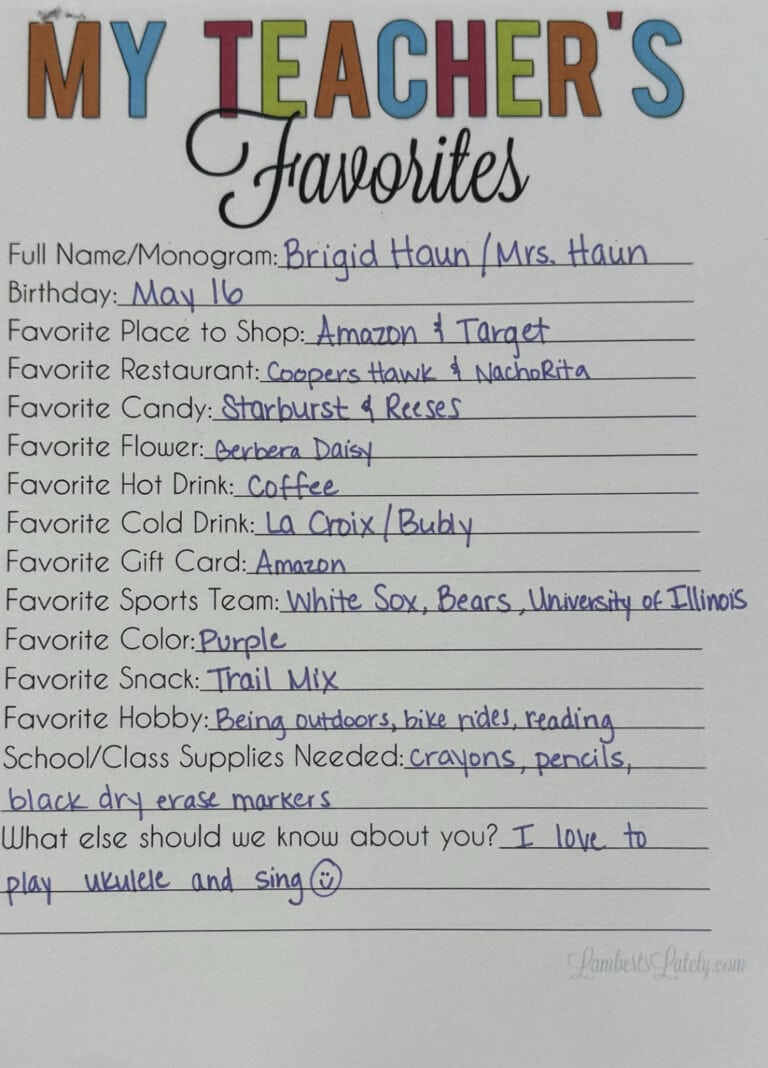 MY TEACHER'S
Favorites
Full Name/Monogram: Brigid Haun / Mrs. Haun
Birthday: May 16
Favorite Place to Shop: Amazon & Target
Favorite Restaurant: Coopers Hawk & NachoRita
Favorite Candy: Starburst & Reeses
Favorite Flower: Gerbera Daisy
Favorite Hot Drink: Coffee
Favorite Cold Drink: La Croix / Bubly
Favorite Gift Card: Amazon
Favorite Sports Team: White Sox, Bears, University of Illinois
Favorite Color: Purple
Favorite Snack: Trail Mix
Favorite Hobby: Being outdoors, bike rides, reading
School/Class Supplies Needed: crayons, pencils,
black dry erase markers
What else should we know about you? I love to
play ukulele and sing ☺
LambertsLately.com